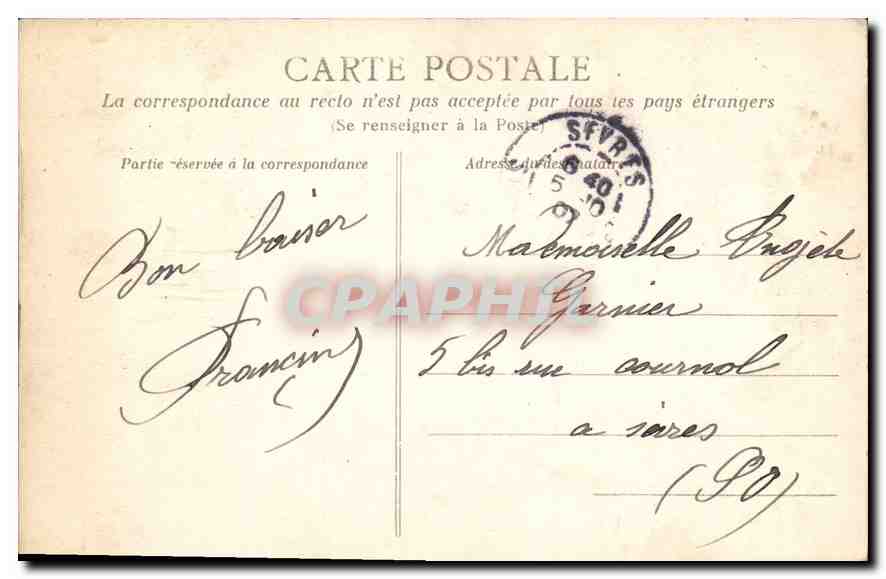 CARTE POSTALE
La correspondance au recto n'est pas acceptée par tous les pays étrangers
(Se renseigner à la Poste)
Partie réservée à la correspondance
Adresse du destinataire
SEVRES
6 40
5 10
Bon baiser
Francin
Mademoiselle Angèle
Garnier
5 bis rue cournol
a sèvres
(SO)
CPAPHIL